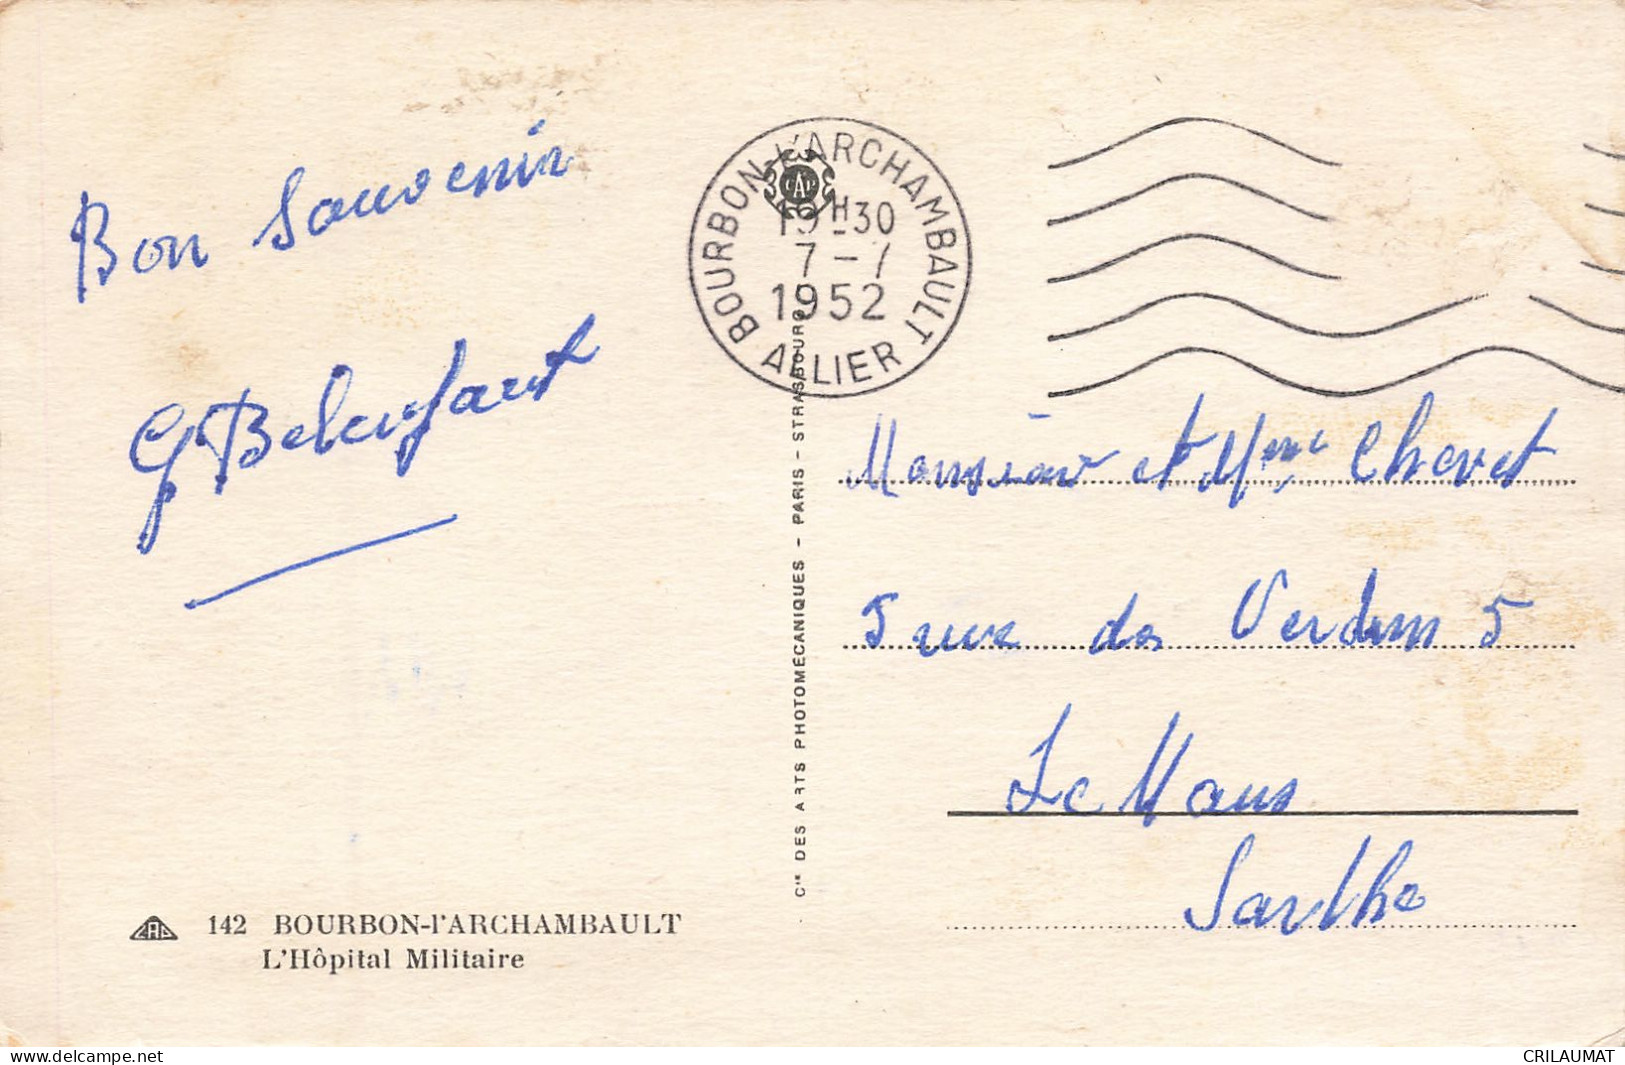 Bon Souvenir
G
142 BOURBON-l'ARCHAMBAULT
L'Hôpital Militaire
Cie DES ARTS PHOTOMECANIQUES - PARIS - STRASBOURG
CAP
BOURBON-L'ARCHAMBAULT
19H30
7-7
1952
ALLIER
Monsieur et Mme Chevet
5 rue de Verdun 5
Le Mans
Sarthe
www.delcampe.net
CRILAUMAT